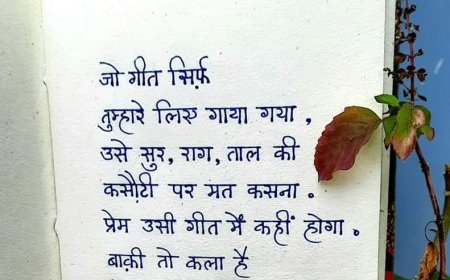 जो गीत सिर्फ़
तुम्हारे लिए गाया गया ,
उसे सुर, राग, ताल की
कसौटी पर मत कसना .
प्रेम उसी गीत में कहीं होगा .
बाक़ी तो कला है